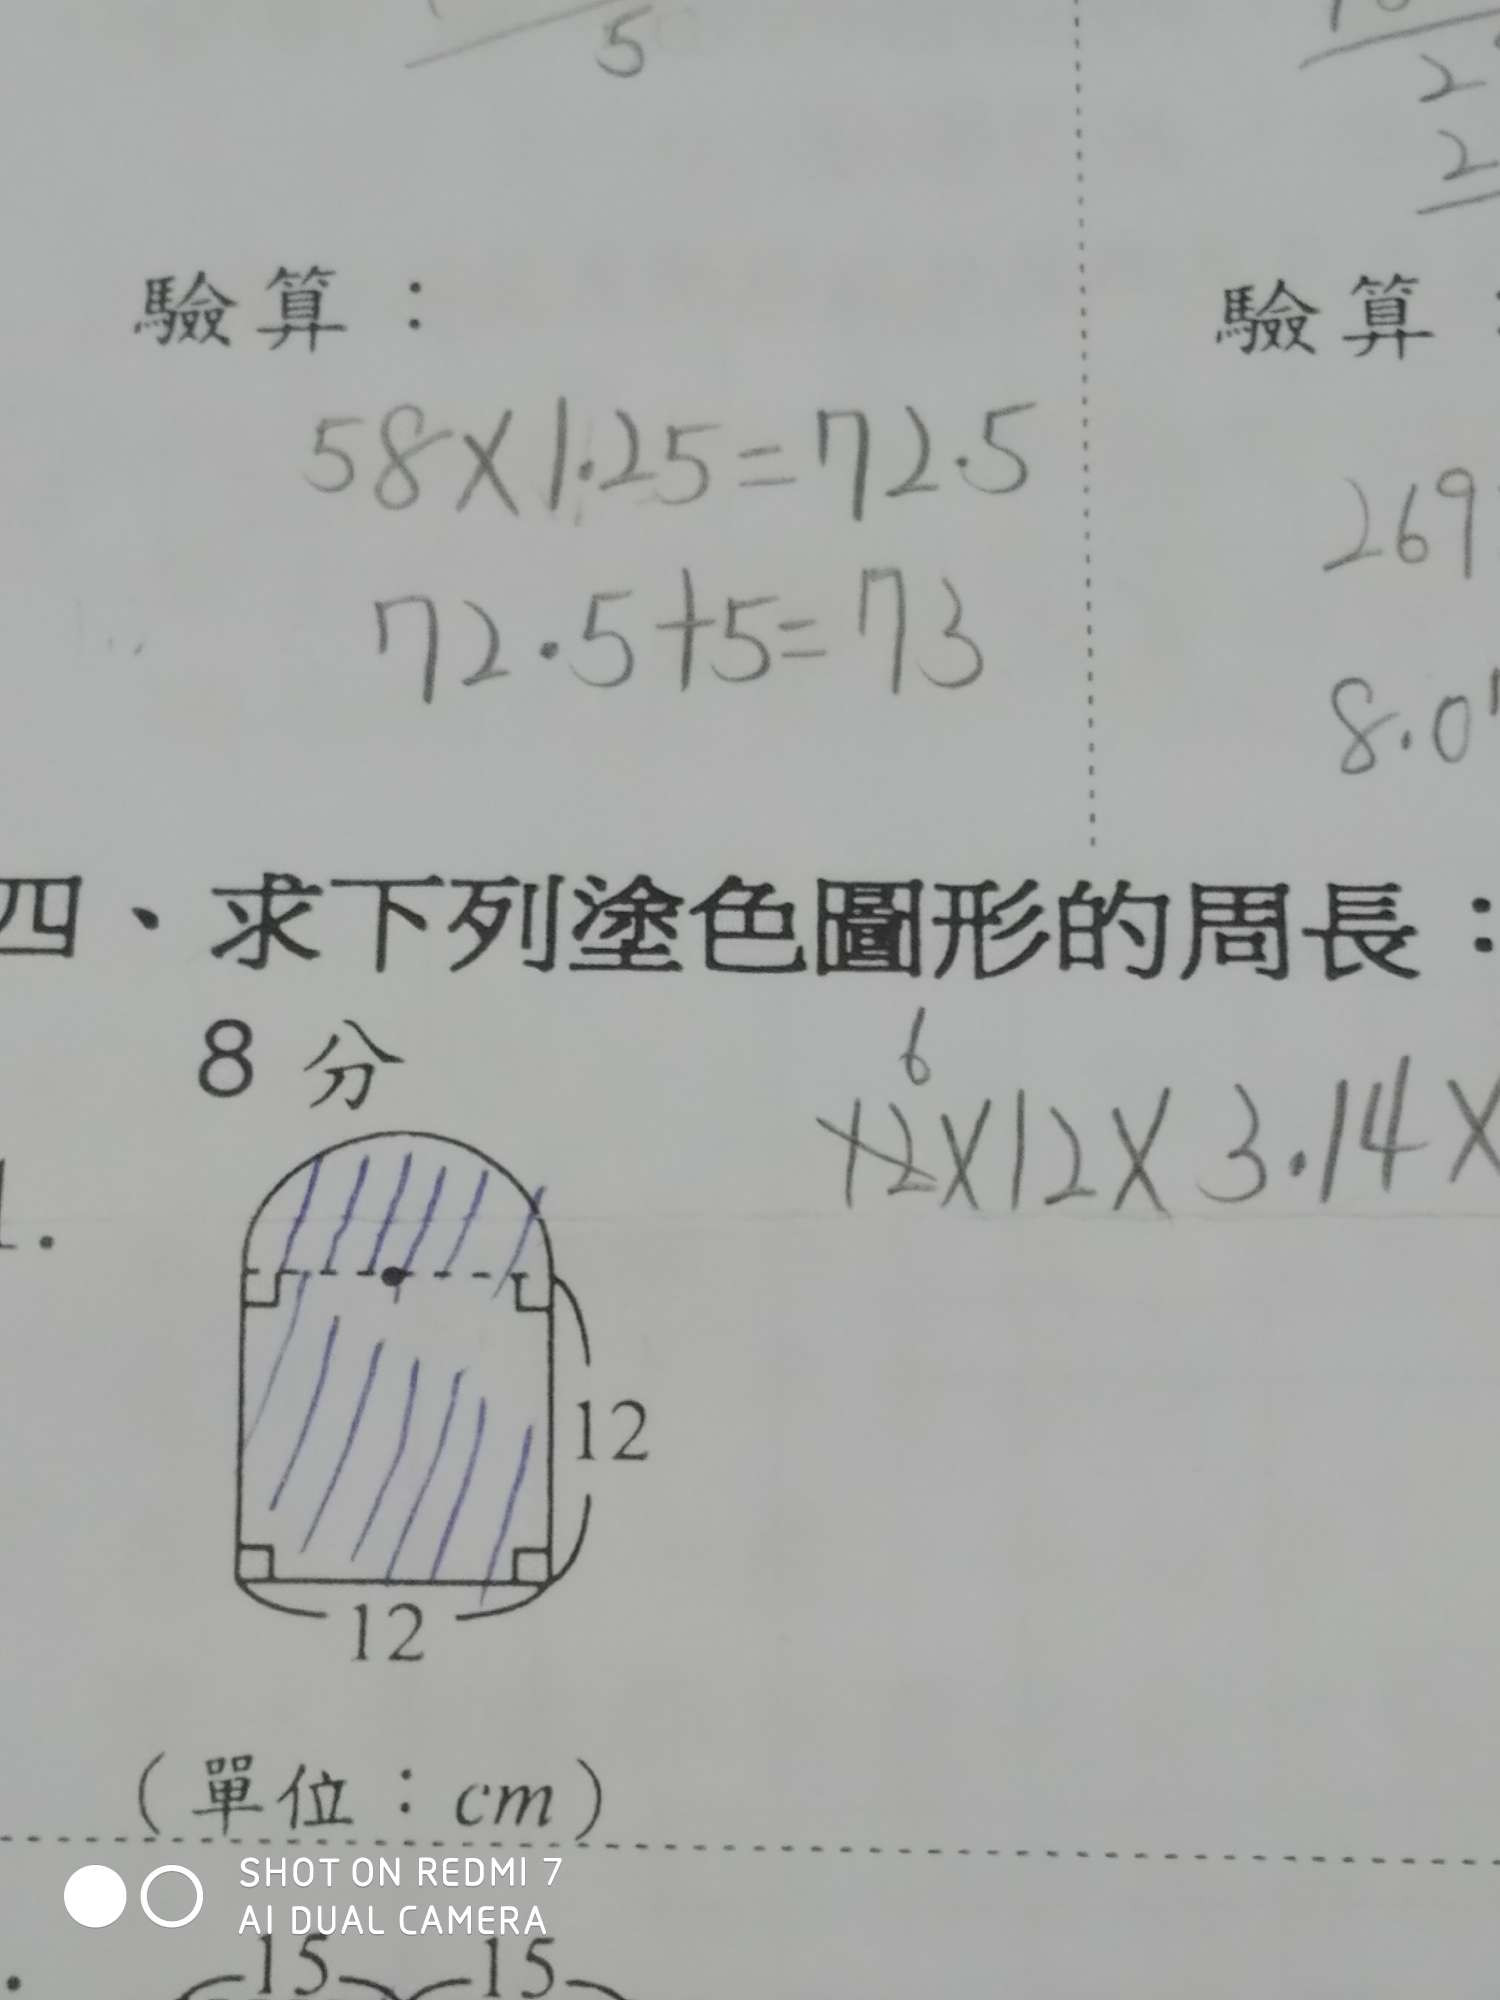 5
2
2
驗算：
驗算：
58×1.25=72.5
72.5+5=73
269
8.0
四、求下列塗色圖形的周長：
8 分
6
12×12×3.14×
1.
12
12
（單位：cm）
SHOT ON REDMI 7
AI DUAL CAMERA
15 15